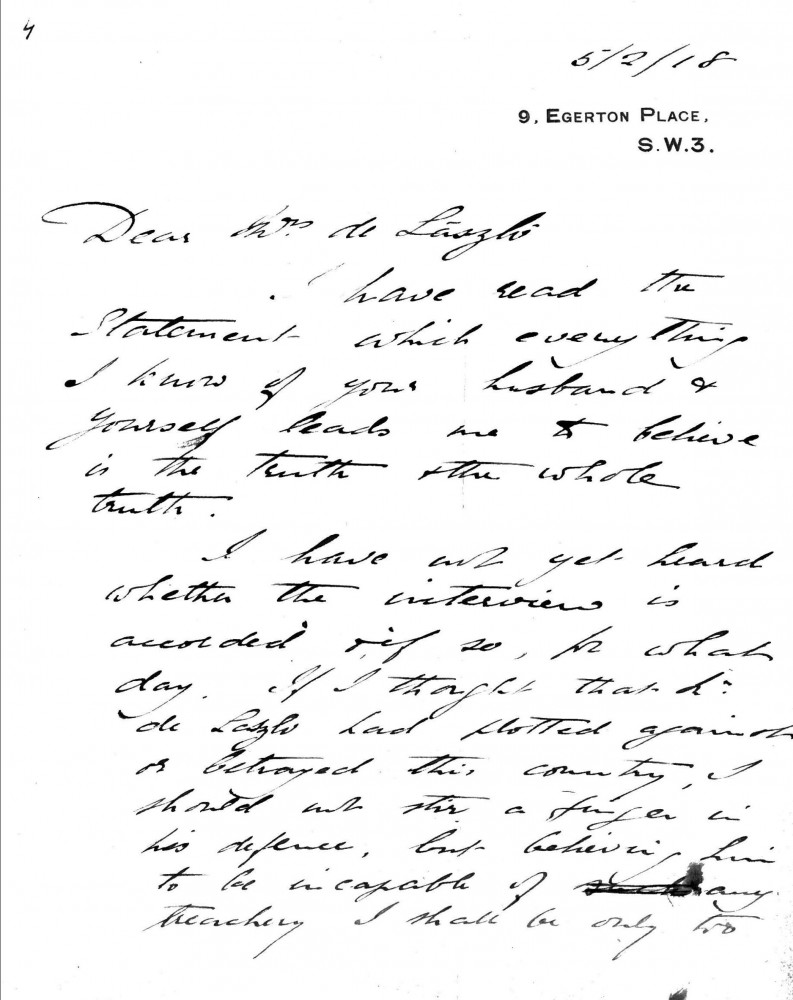 4
5/2/18
9, EGERTON PLACE,
S.W.3.
Dear Mrs de László
I have read the
Statement which everything
I know of your husband &
yourself leads me to believe
is the truth & the whole
truth.
I have not yet heard
whether the interview is
accorded & if so, for what
day. If I thought that Mr
de László had plotted against
or betrayed this country, I
should not stir a finger in
his defence, but believing him
to be incapable of any
treachery I shall be only too